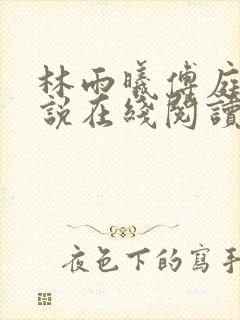 林雨曦傅庭
說在綫閱讀
夜色下的寫手